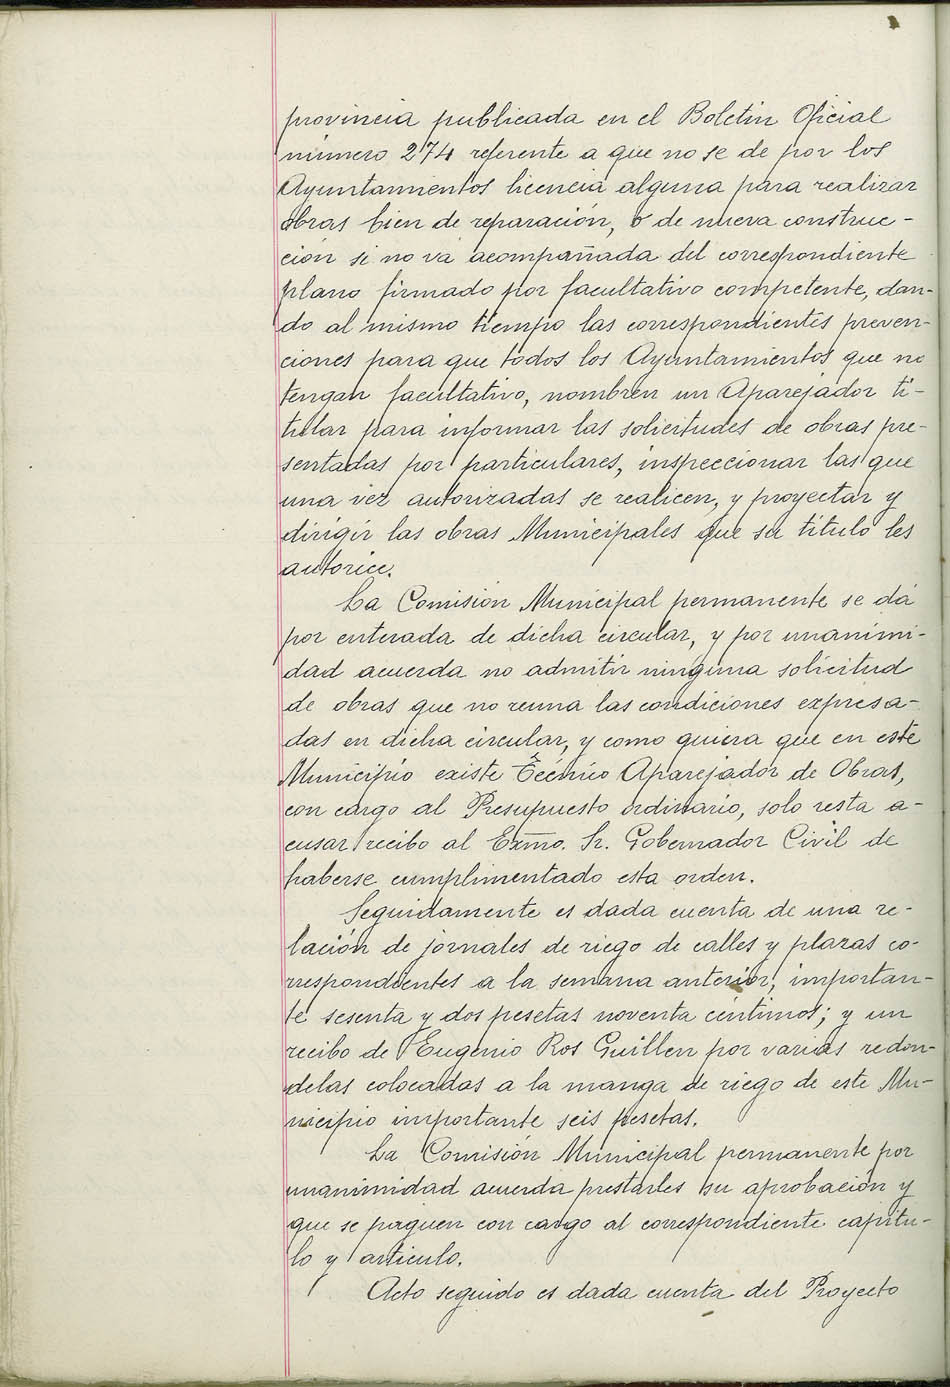 provincia publicada en el Boletin Oficial
número 274 referente a que no se de por los
Ayuntamientos licencia alguna para realizar
obras bien de reparación, o de nueva construc-
ción si no vá acompañada del correspondiente
plano firmado por facultativo competente, dan-
do al mismo tiempo las correspondientes preven-
ciones para que todos los Ayuntamientos que no
tengan facultativo, nombren un Aparejador ti-
tular para informar las solicitudes de obras pre-
sentadas por particulares, inspeccionar las que
una vez autorizadas se realicen, y proyectar y
dirigir las obras Municipales que su título les
autorice.
La Comisión Municipal permanente se dá
por enterada de dicha circular, y por unanimi-
dad acuerda no admitir ninguna solicitud
de obras que no reuna las condiciones expresa-
das en dicha circular, y como quiera que en este
Municipio existe Técnico Aparejador de Obras,
con cargo al Presupuesto ordinario, solo resta a-
cusar recibo al Exmo. Sr. Gobernador Civil de
haberse cumplimentado esta orden.
Seguidamente es dada cuenta de una re-
lación de jornales de riego de calles y plazas co-
rrespondientes a la semana anterior, importan-
te sesenta y dos pesetas noventa céntimos; y un
recibo de Eugenio Ros Guillen por varias redon-
delas colocadas a la manga de riego de este Mu-
nicipio importante seis pesetas.
La Comisión Municipal permanente por
unanimidad acuerda prestarles su aprobación y
que se paguen con cargo al correspondiente capitu-
lo y articulo.
Acto seguido es dada cuenta del Proyecto